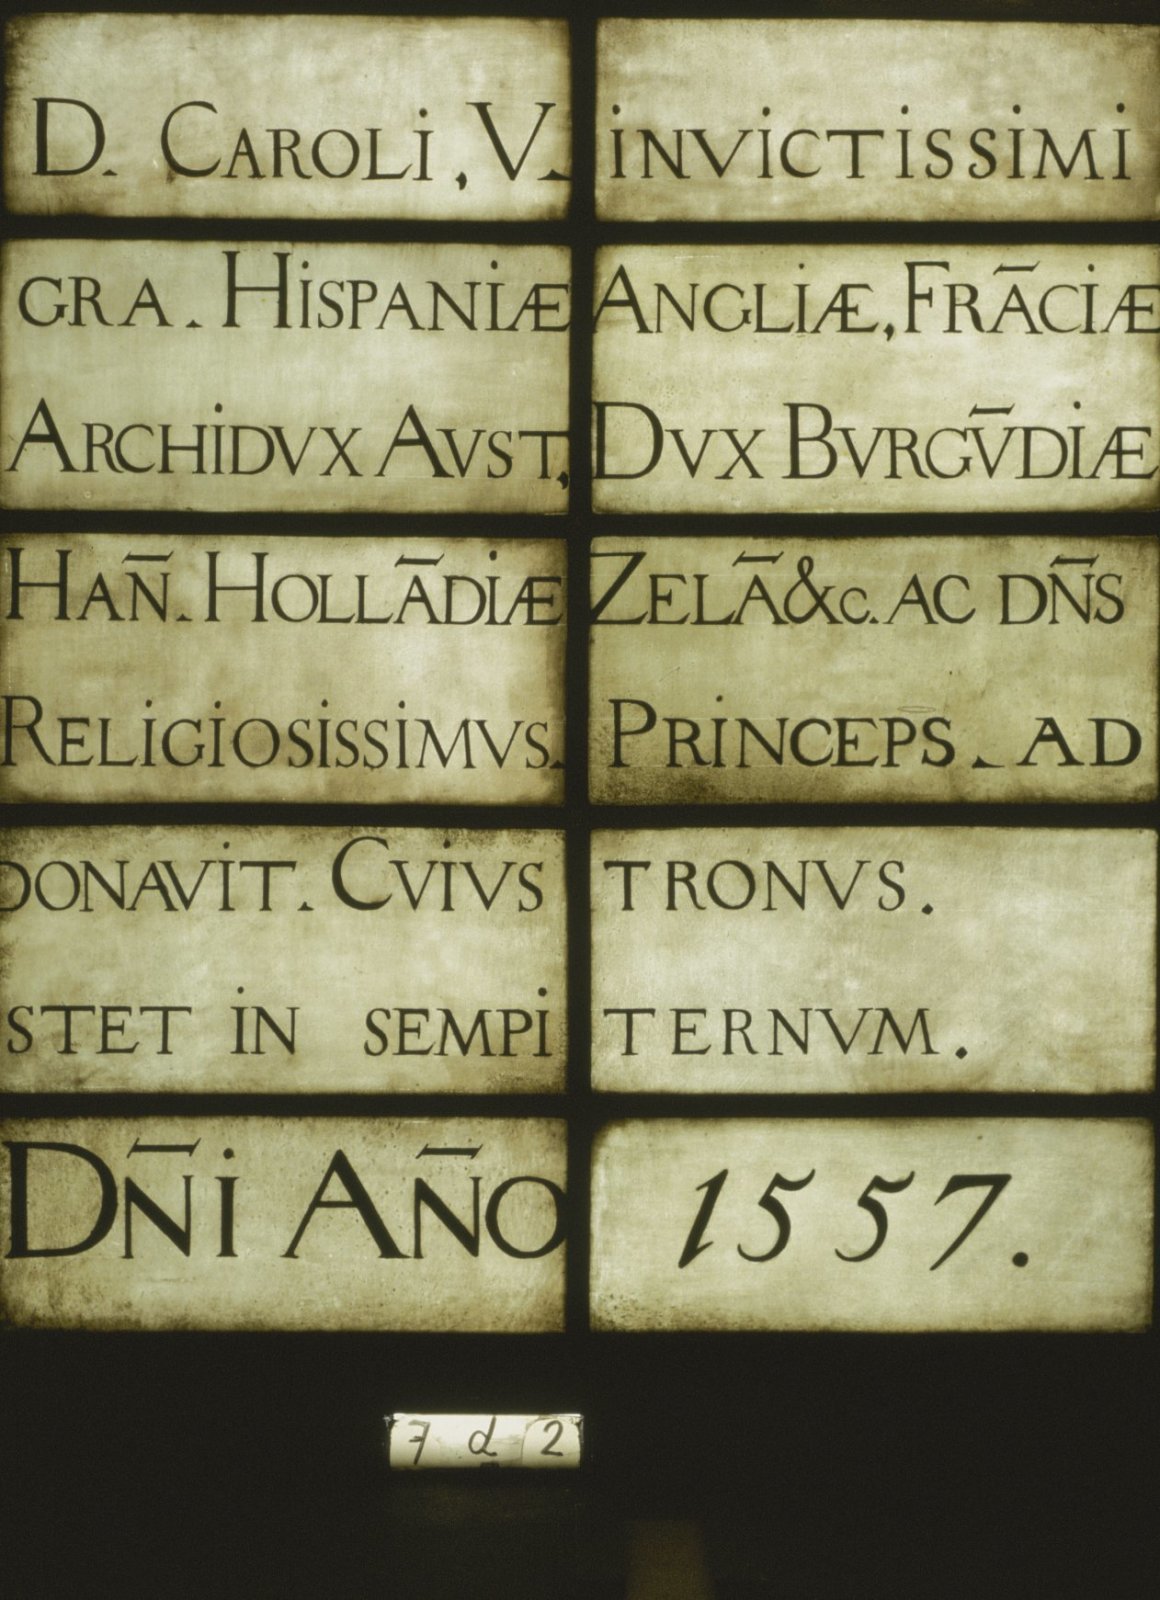 D. CAROLI, V. INVICTISSIMI
GRA. HISPANIÆ ANGLIÆ, FRĀCIÆ
ARCHIDVX AVST, DVX BVRGV̄DIÆ
HAN̄. HOLLĀDIÆ ZELĀ &c. AC DN̄S
RELIGIOSISSIMVS. PRINCEPS. AD
DONAVIT. CVIVS TRONVS.
STET IN SEMPI TERNVM.
DN̄I AN̄O 1557.
7 d 2